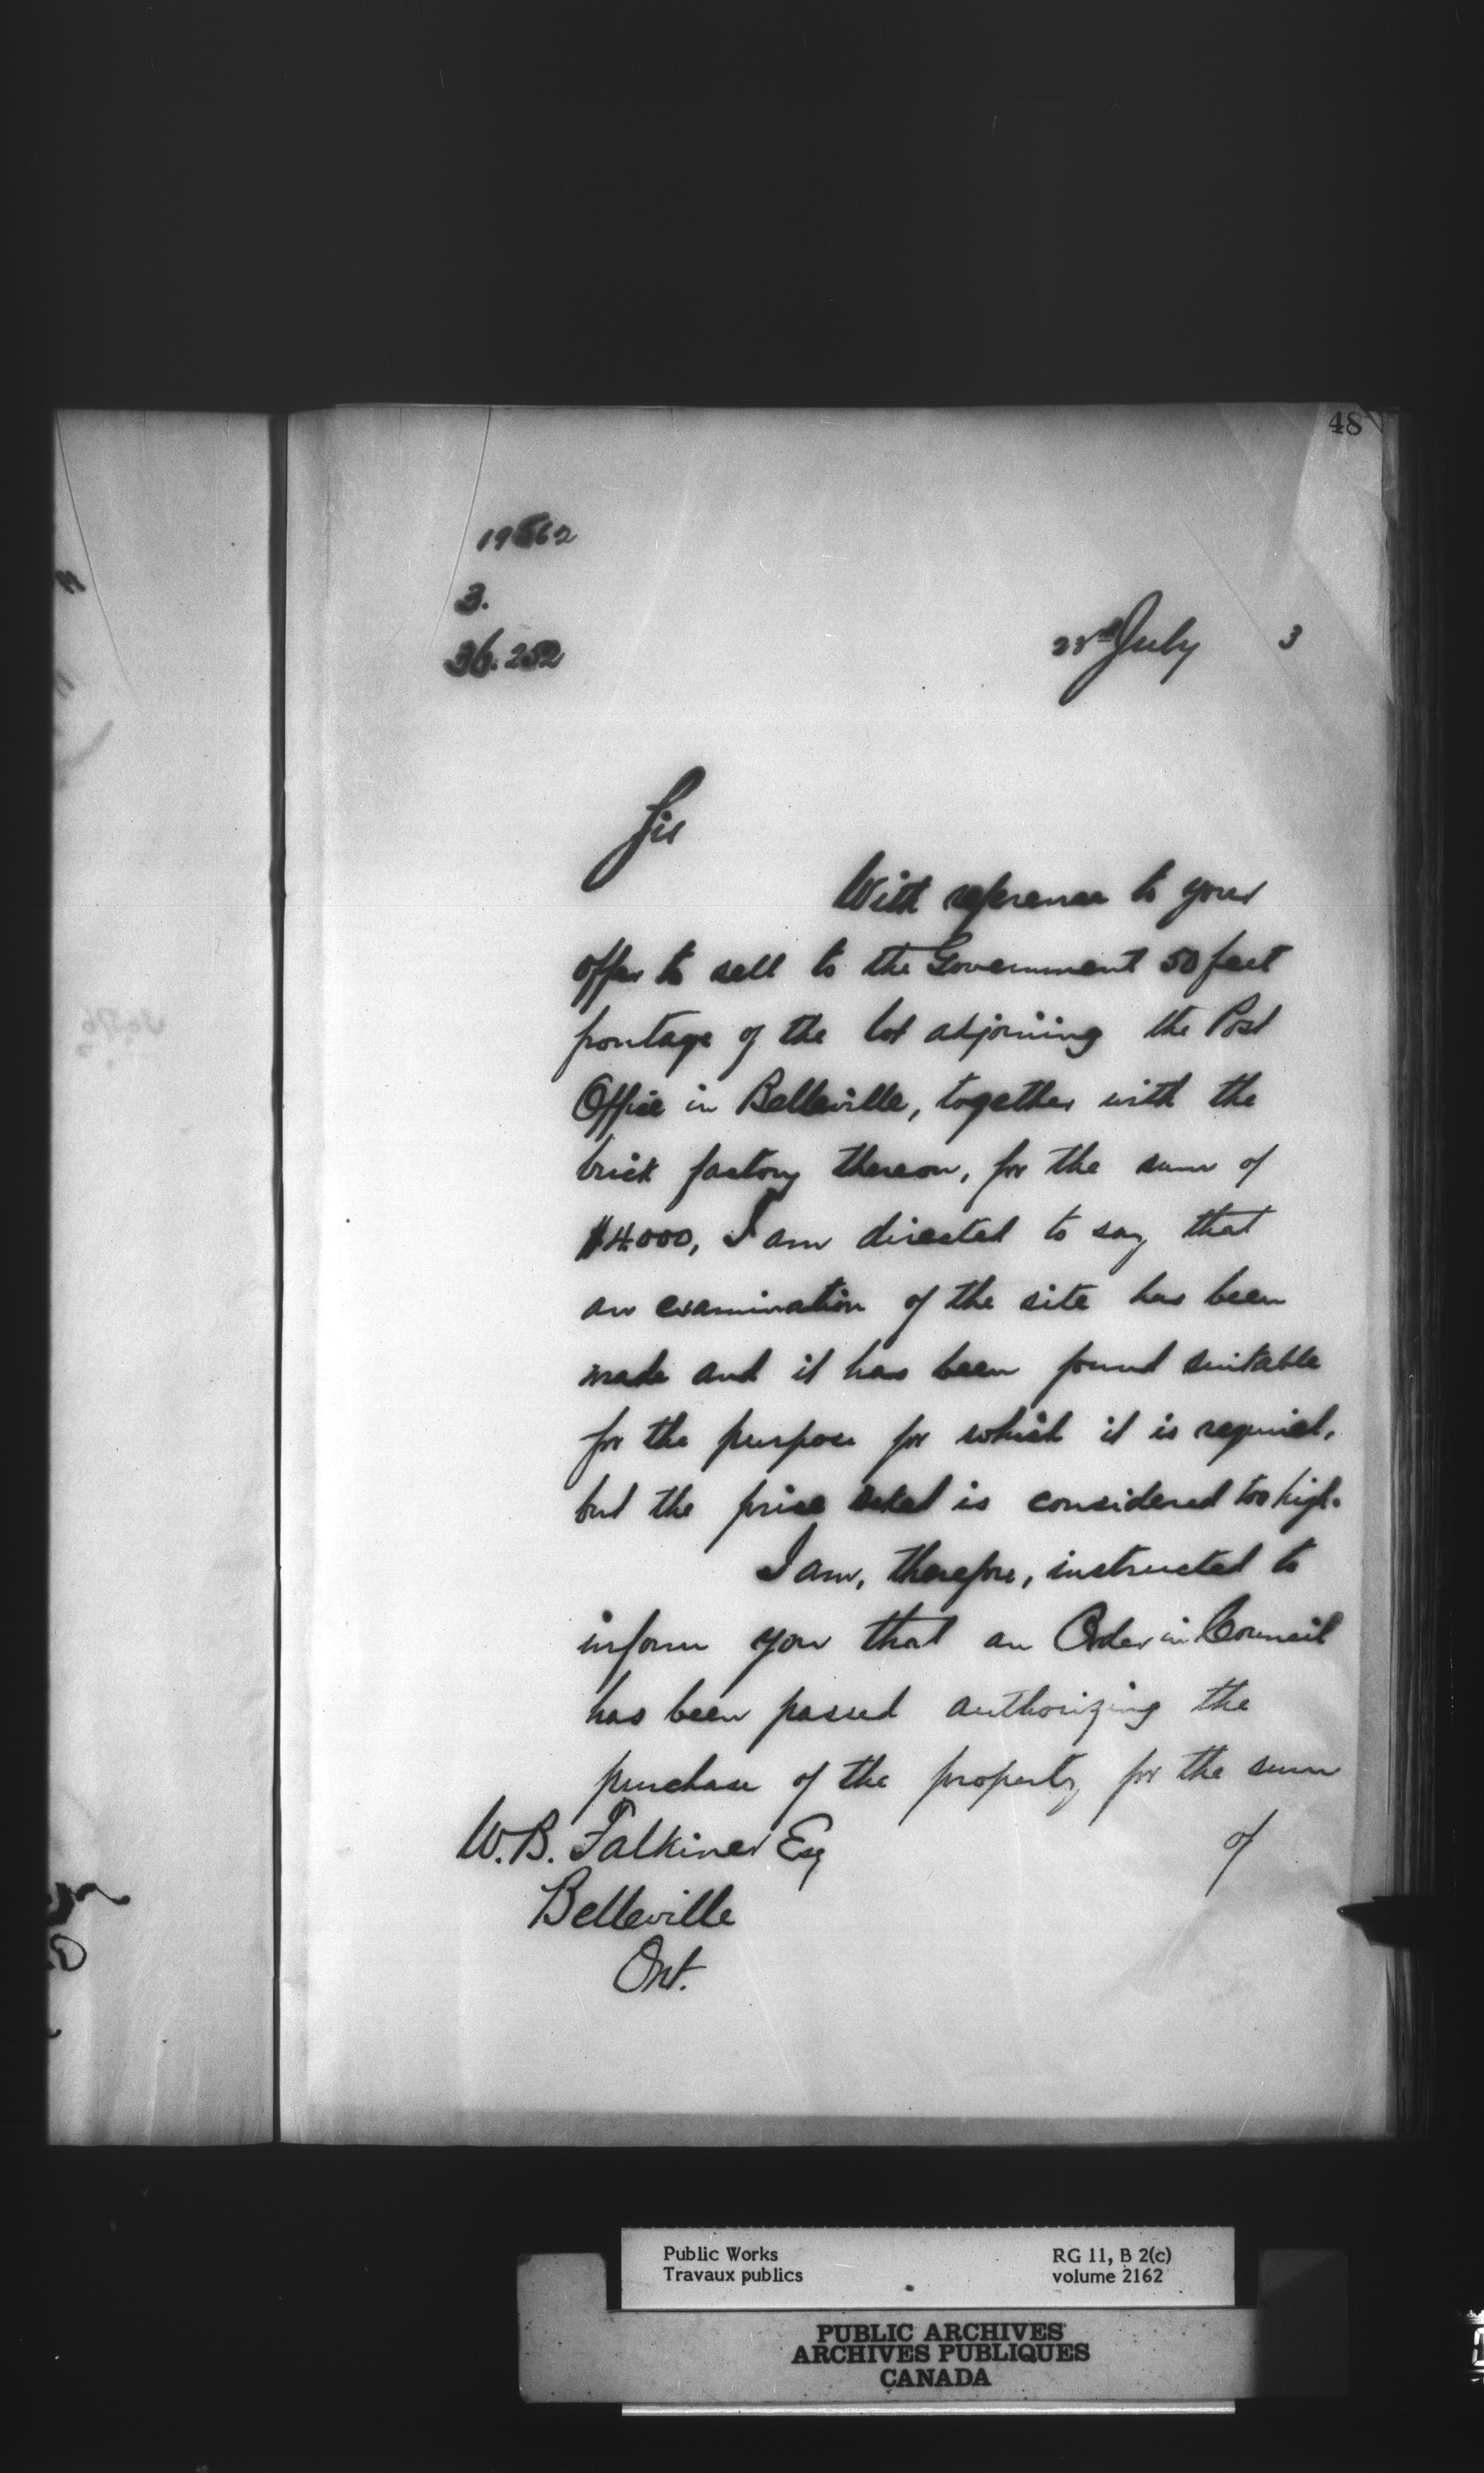 48
19562
3.
36.252
23rd July 3
Sir
With reference to your
offer to sell to the Government 50 feet
frontage of the lot adjoining the Post
Office in Belleville, together with the
brick factory thereon, for the sum of
$4000, I am directed to say that
an examination of the site has been
made and it has been found suitable
for the purpose for which it is required,
but the price asked is considered too high.
I am, therefore, instructed to
inform you that an Order in Council
has been passed authorizing the
purchase of the property for the sum
of
W.B. Falkiner Esq
Belleville
Ont.
Public Works
Travaux publics
RG 11, B 2(c)
volume 2162
PUBLIC ARCHIVES
ARCHIVES PUBLIQUES
CANADA